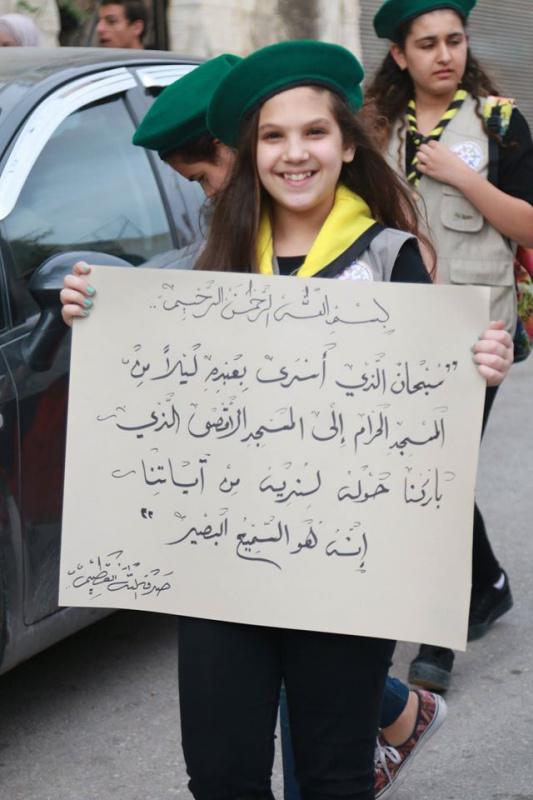 بسم الله الرحمن الرحيم ..
"سُبْحان الذي أَسْرَى بِعَبْدِهِ لَيْلاً مِنَ
المسجدِ الحَرامِ إِلى المَسْجِدِ الأَقْصَى الذي
باركنا حَوْلَهُ لِنُرِيَهُ مِنْ آياتِنا
إِنَّهُ هُوَ السَّمِيعُ البَصِيرُ"
صدق الله العظيم ..